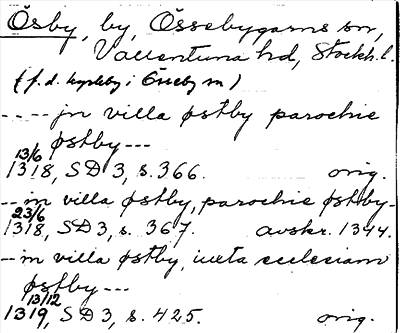 Ösby, by, Össebygarns sn,
Vallentuna hd, Stockh. l.
(f.d. kyrkby i Össeby sn)
---- jn villa østby parochie
østby---
13/6
1318, SD 3, s. 366. orig.
-- in villa østby, parochie østby-
23/6
1318, SD 3, s. 367. avskr. 1344.
-- in villa østby, iuxta ecclesiam
østby ---
13/12
1319, SD 3, s. 425. orig.